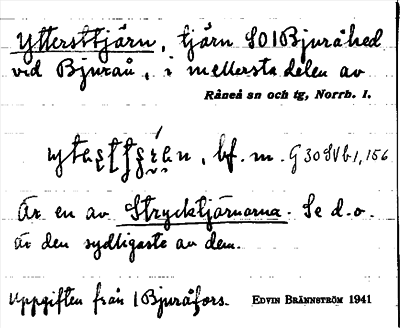 Yttersttjärn, tjärn SO 1 Bjuråhed
vid Bjuraå, i mellersta delen av
Råneå sn och tg, Norrb. l.
bf. m. G 30 SV b 1, 156
Är en av Strycktjärnarna. Se d.o.
Är den sydligaste av dem.
Uppgiften från 1 Bjuråfors. EDVIN BRÄNNSTRÖM 1941